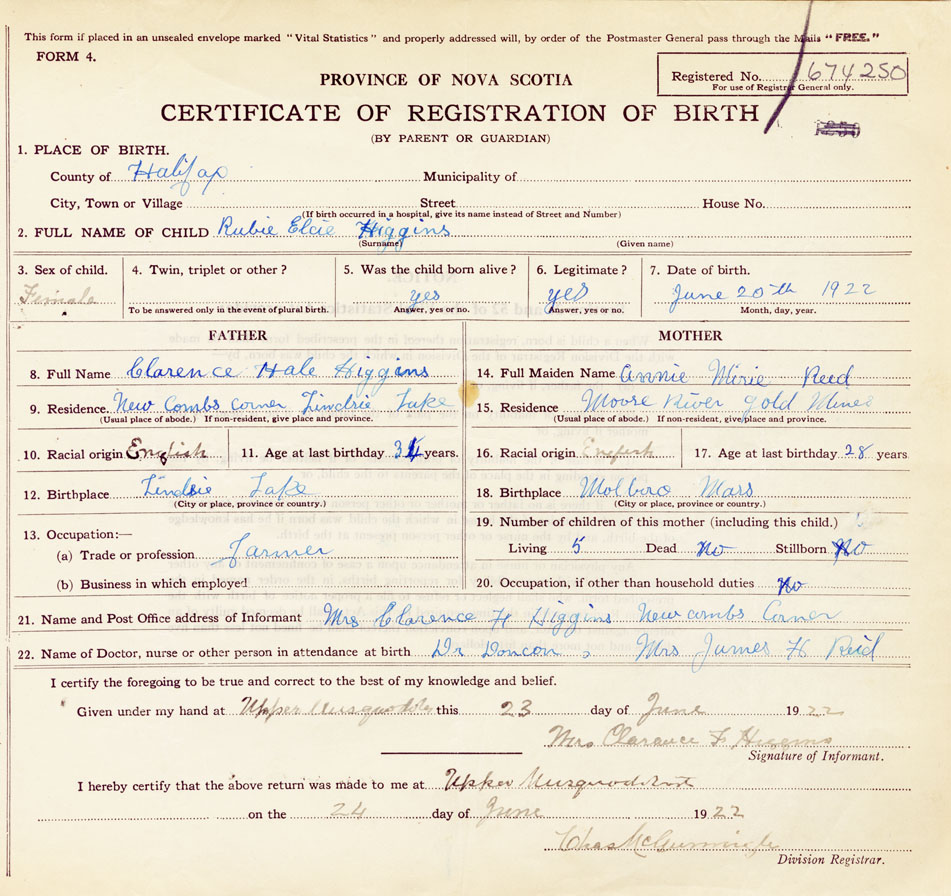 This form if placed in an unsealed envelope marked "Vital Statistics" and properly addressed will, by order of the Postmaster General pass through the Mails "FREE."
FORM 4.
PROVINCE OF NOVA SCOTIA
Registered No. 674250
For use of Registrar General only.
CERTIFICATE OF REGISTRATION OF BIRTH
(BY PARENT OR GUARDIAN)
1. PLACE OF BIRTH.
County of Halifax Municipality of
City, Town or Village Street House No.
(If birth occurred in a hospital, give its name instead of Street and Number)
2. FULL NAME OF CHILD Rubie Elcie Higgins
(Surname) (Given name)
3. Sex of child. 4. Twin, triplet or other? 5. Was the child born alive? 6. Legitimate? 7. Date of birth.
Female yes yes June 20th 1922
To be answered only in the event of plural birth. Answer, yes or no. Answer, yes or no. Month, day, year.
FATHER MOTHER
8. Full Name Clarence Hale Higgins 14. Full Maiden Name Annie Mirie Reed
9. Residence. New Combs corner Lindsie Lake 15. Residence Moose River Gold Mines
(Usual place of abode.) If non-resident, give place and province. (Usual place of abode.) If non-resident, give place and province.
10. Racial origin English 11. Age at last birthday 34 years. 16. Racial origin English 17. Age at last birthday 28 years
12. Birthplace Lindsie Lake 18. Birthplace Molboro Mass
(City or place, province or country.) (City or place, province or country.)
13. Occupation:— 19. Number of children of this mother (including this child.) 5
(a) Trade or profession Farmer Living 5 Dead No Stillborn No
(b) Business in which employed 20. Occupation, if other than household duties No
21. Name and Post Office address of Informant Mrs Clarence H Higgins Newcombs Corner
22. Name of Doctor, nurse or other person in attendance at birth Dr Doncon, Mrs James H Reid
I certify the foregoing to be true and correct to the best of my knowledge and belief.
Given under my hand at Upper Musquodobit this 23 day of June 1922
Mrs Clarance F Higgins
Signature of Informant.
I hereby certify that the above return was made to me at Upper Musquodobit
on the 24 day of June 1922
Chas McGunnigle
Division Registrar.